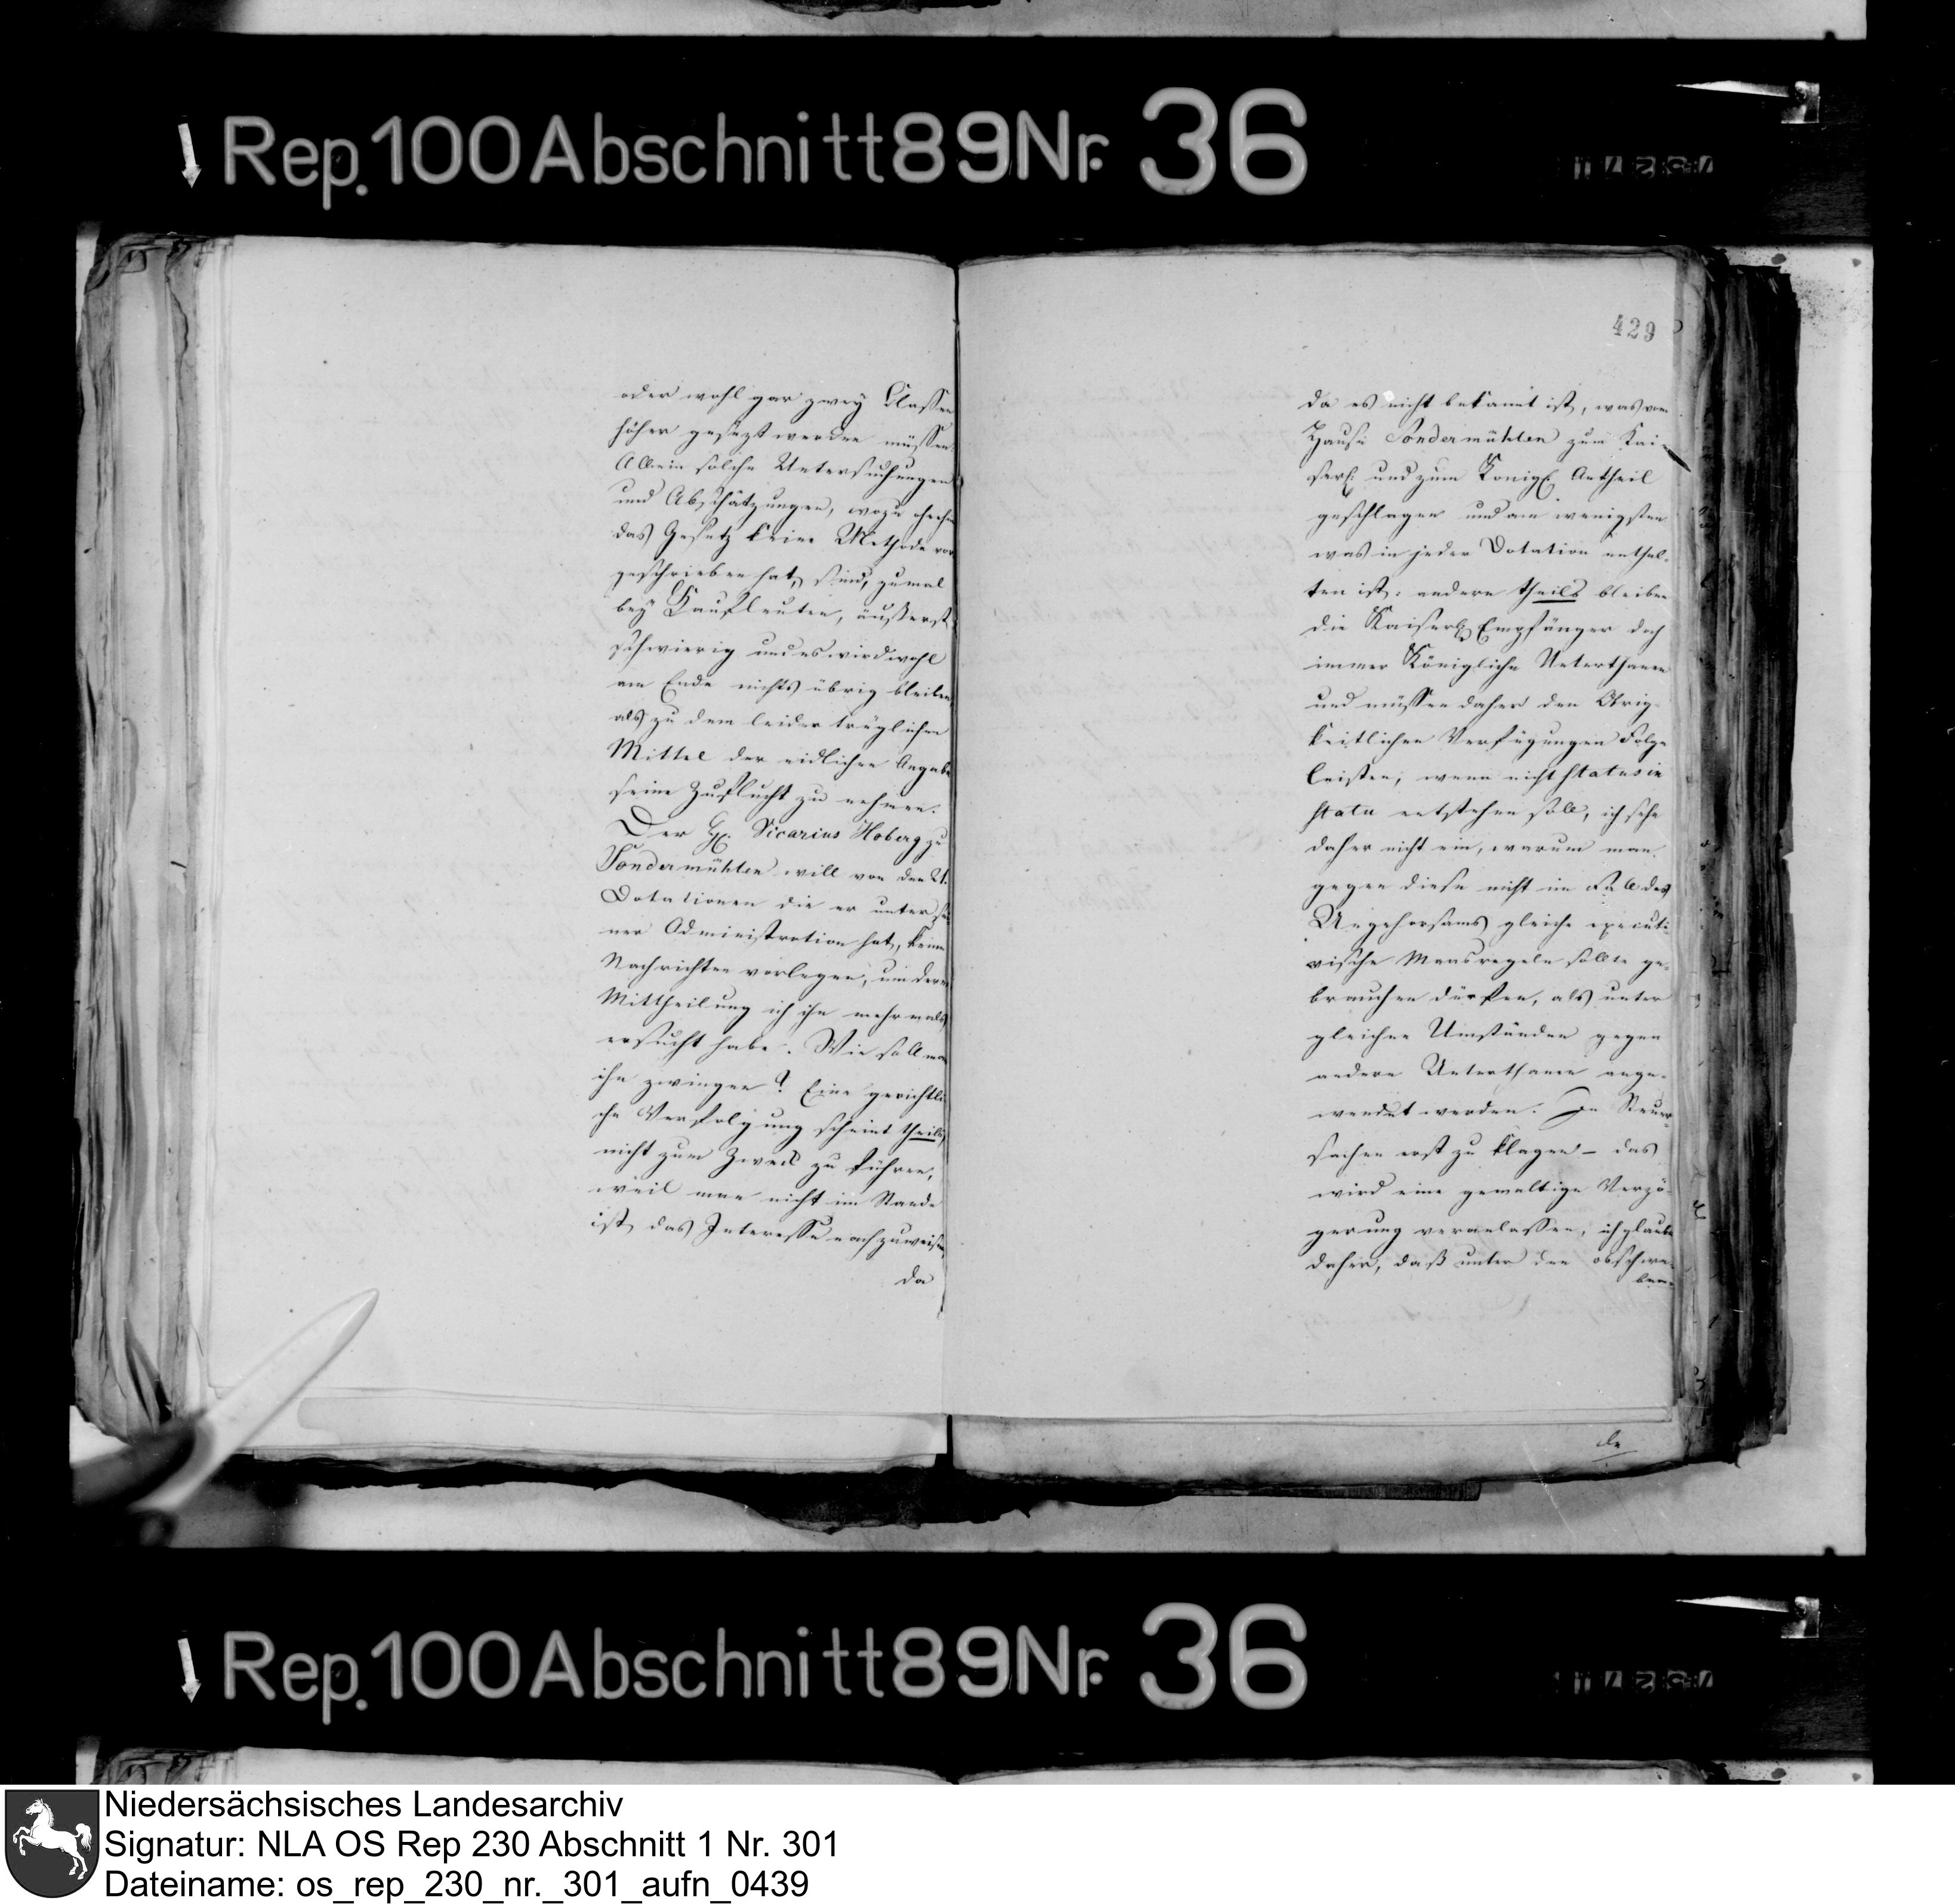 Rep. 100 Abschnitt 89 Nr. 36
oder wohl gar zwey Classen
höher gesezt werden müssen.
Allein solche Untersuchungen
und Abschätzungen, wozu ohnehin
das Gesetz keine Methode vor
geschrieben hat, sind, zumal
bey Kaufleuten, äußerst
schwierig und es wird wohl
am Ende nichts übrig bleiben,
als zu dem leider trüglichen
Mittel der eidlichen Angabe
seine Zuflucht zu nehmen.
Der H. Vicarius Hoberg zu
Sondermühlen will von den 21.
Dotationen die er unter sei
ner Administration hat, keine
Nachrichten vorlegen, um deren
Mittheilung ich ihn mehrmals
ersucht habe. Wie soll man
ihn zwingen? Eine gerichtli
che Verfolgung scheint theils
nicht zum Zweck zu führen,
weil man nicht im Stande
ist, das Interesse nachzuweisen,
da
429
da es nicht bekannt ist, was vom
Hause Sondermühlen zum Kai-
serl: und zum Königl: Antheil
geschlagen und am wenigsten
was in jeder Dotation enthal-
ten ist: andern theils bleiben
die Kaiserl: Empfänger doch
immer Königliche Unterthanen
und müssen daher den Obrig-
keitlichen Verfügungen Folge
leisten, wenn nicht status in
statu entstehen soll, ich sehe
daher nicht ein, warum man
gegen diese nicht im Fall des
Ungehorsams gleiche executi-
vische Maasregeln sollte ge-
brauchen dürfen, als unter
gleichen Umständen gegen
andere Unterthanen ange-
wendet werden. In Steuer-
sachen erst zu klagen – das
wird eine gewaltige Verzö-
gerung veranlassen, ich glaube
daher, daß unter den obschwe-
ben-
Rep. 100 Abschnitt 89 Nr. 36
Niedersächsisches Landesarchiv
Signatur: NLA OS Rep 230 Abschnitt 1 Nr. 301
Dateiname: os_rep_230_nr._301_aufn_0439